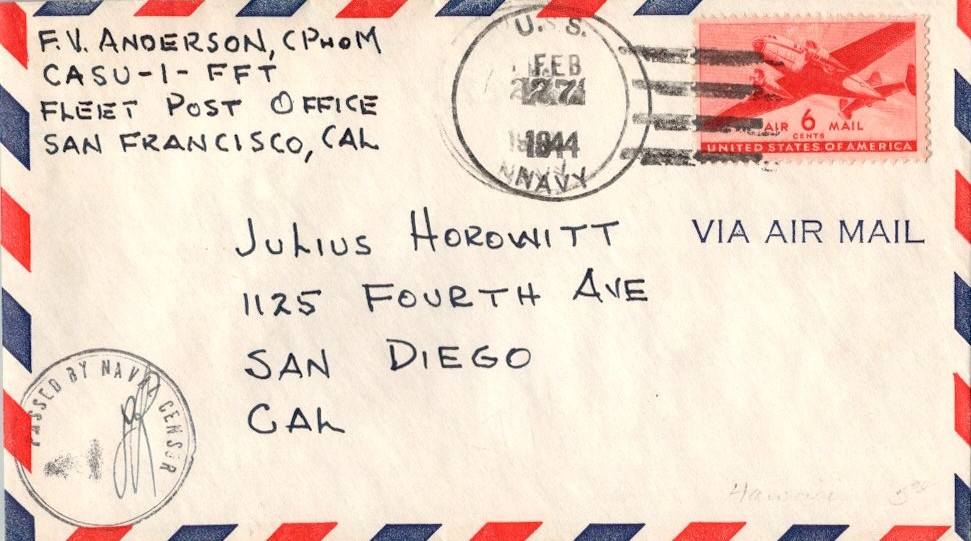 F.V. ANDERSON, CPHOM
CASU-1-FFT
FLEET POST OFFICE
SAN FRANCISCO, CAL
U.S.
FEB
27
1944
NAVY
AIR 6 MAIL
CENTS
UNITED STATES OF AMERICA
VIA AIR MAIL
JULIUS HOROWITT
1125 FOURTH AVE
SAN DIEGO
CAL
PASSED BY NAVAL CENSOR
Hawaii